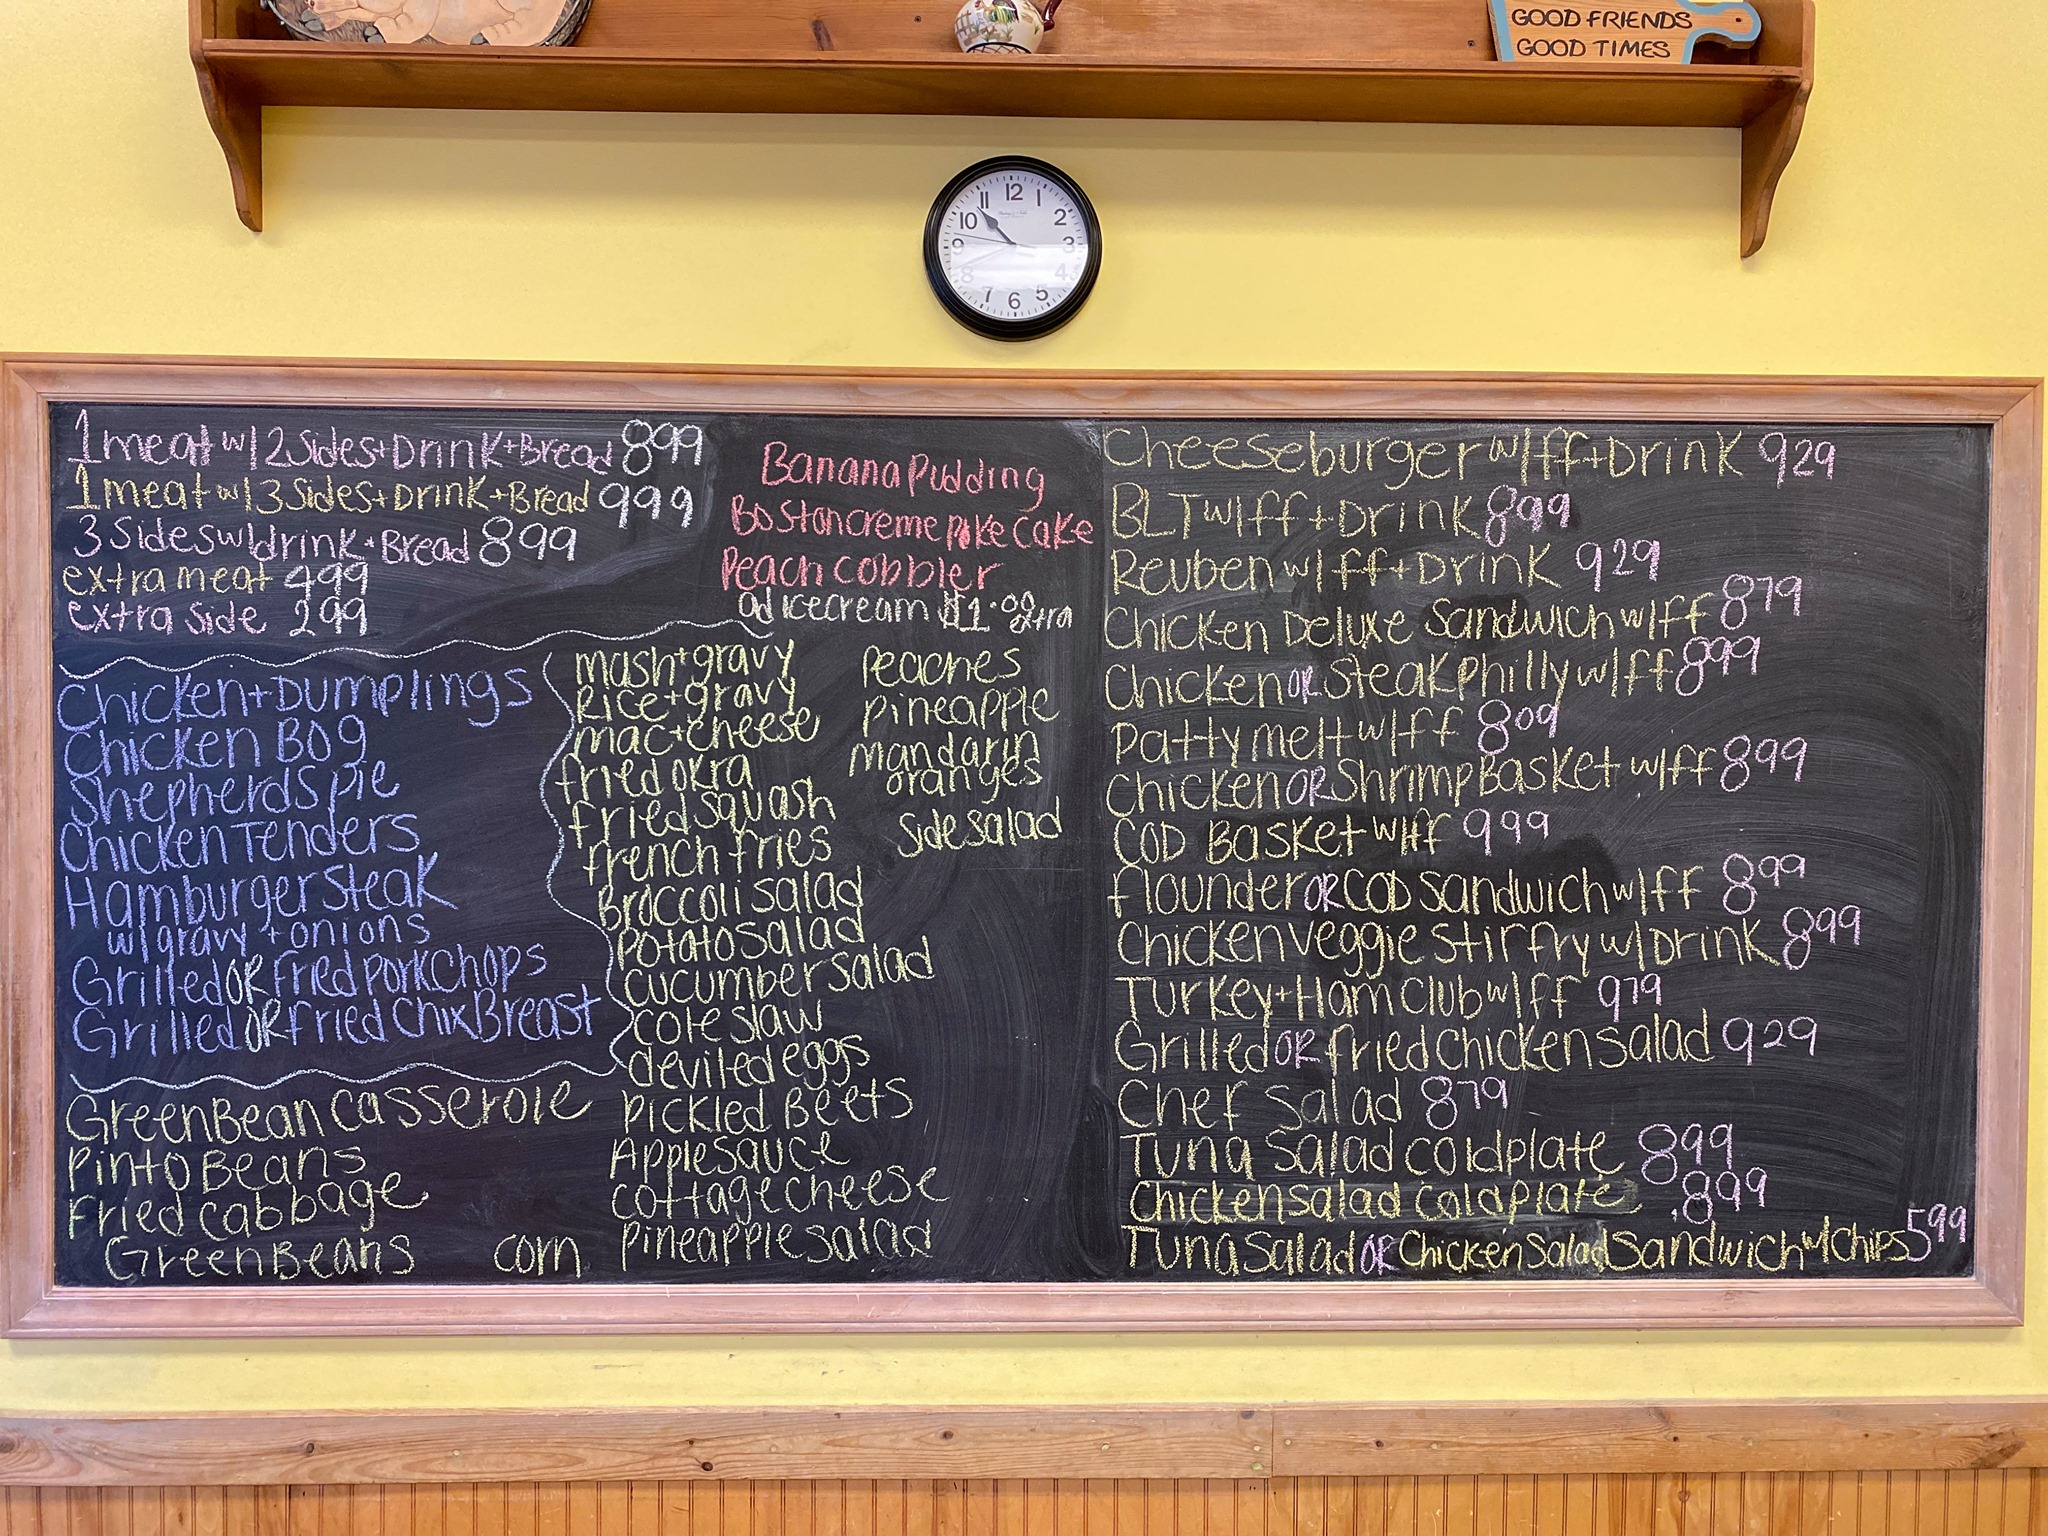 GOOD FRIENDS
GOOD TIMES
12
1
2
3
4
5
6
7
8
9
10
11
1 meat w/ 2 Sides + Drink + Bread 899
1 meat w/ 3 Sides + Drink + Bread 999
3 Sides w/ drink + Bread 899
extra meat 499
extra side 299
Banana Pudding
Boston creme Poke Cake
Peach cobbler
ad icecream $1.00 extra
Chicken + Dumplings
Chicken Bog
Shepherds Pie
Chicken Tenders
Hamburger Steak
w/ gravy + onions
Grilled OR fried Porkchops
Grilled OR fried Chix Breast
Green Bean Casserole
Pinto Beans
Fried Cabbage
Green Beans
corn
mash + gravy
Rice + gravy
mac + cheese
fried okra
fried squash
french fries
Broccoli salad
Potato salad
cucumber salad
cole slaw
deviled eggs
Pickled Beets
Applesauce
cottage cheese
Pineapple salad
Peaches
Pineapple
mandarin
oranges
side salad
Cheeseburger w/ ff + Drink 929
BLT w/ ff + Drink 899
Reuben w/ ff + Drink 929
Chicken Deluxe Sandwich w/ ff 879
Chicken OR Steak philly w/ ff 899
Patty melt w/ ff 809
Chicken OR Shrimp Basket w/ ff 899
COD Basket w/ ff 999
flounder OR COD sandwich w/ ff 899
Chicken veggie stir fry w/ Drink 899
Turkey + Ham Club w/ ff 979
Grilled OR fried Chicken salad 929
Chef Salad 879
Tuna Salad coldplate 899
Chicken salad coldplate .899
Tuna Salad OR Chicken Salad Sandwich w/ Chips 599